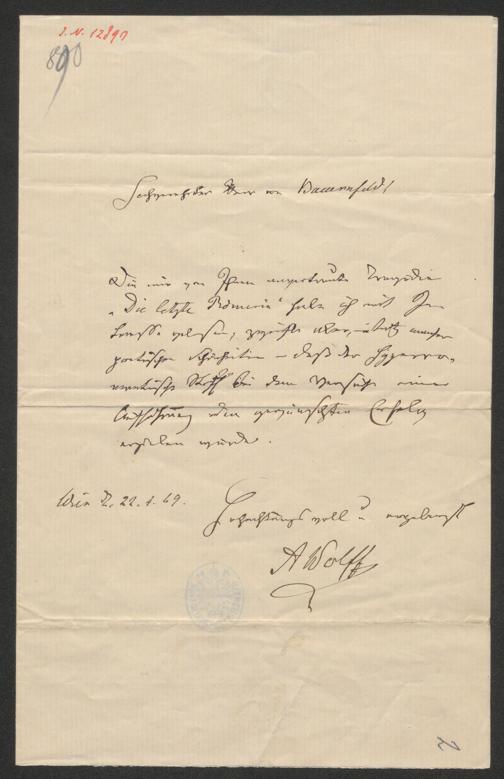 I. N. 12890
890
Hochverehrter Herr von Bauernfeld!
Die mir von Ihnen anvertraute Tragödie
„Die letzte Römerin“ habe ich mit In-
teresse gelesen, zweifle aber, trotz mancher
poetischen Schönheiten – daß der
Stoff bei dem Versuche einer
Aufführung den gewünschten Erfolg
erzielen würde.
Wien d. 22. 1. 69.
Hochachtungsvoll u ergebenst
A Wolff